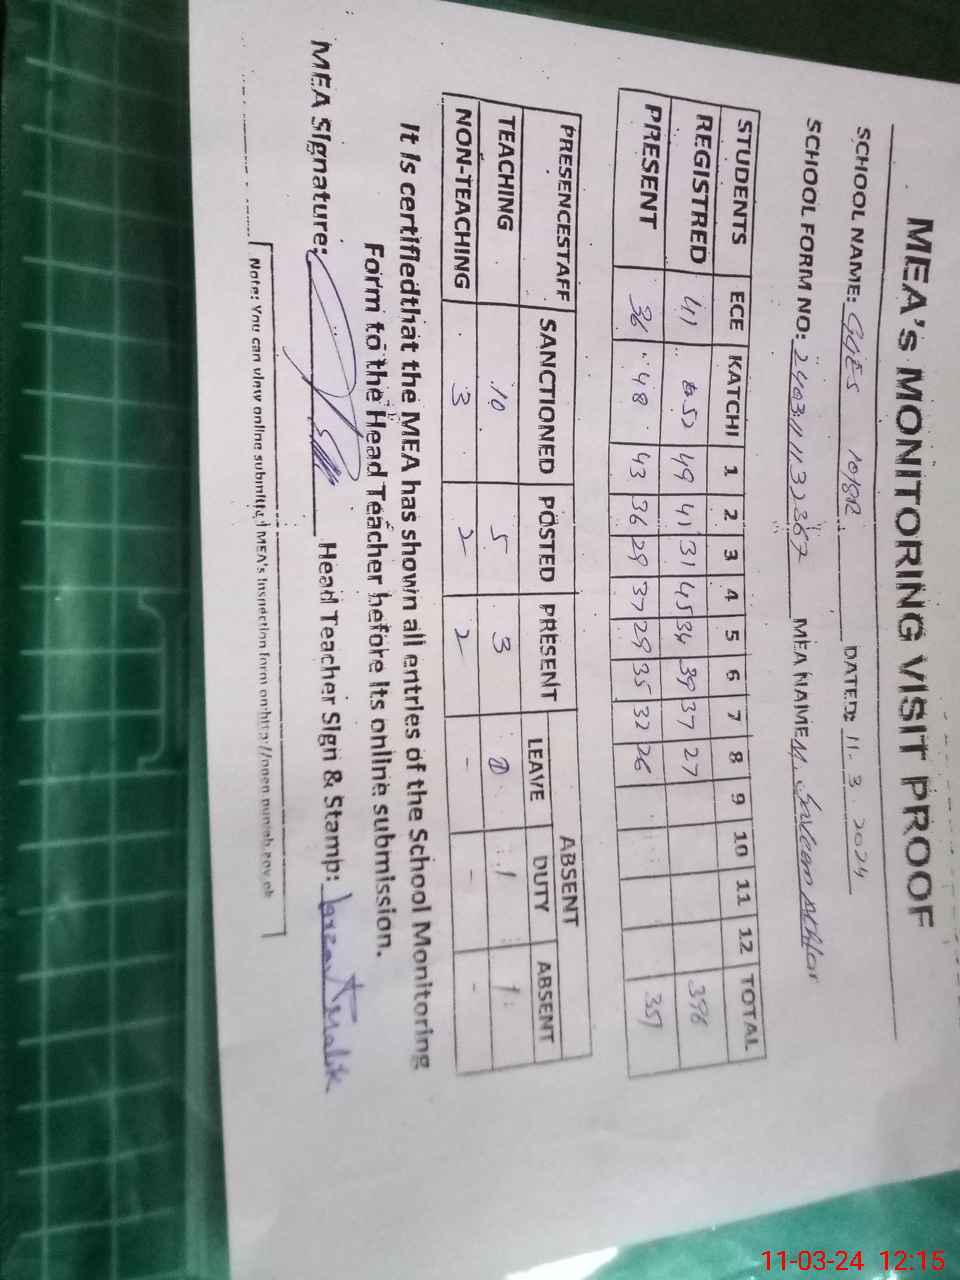 MEA's MONITORING VISIT PROOF
SCHOOL NAME: GGES 10/8R DATED: 11-3-2024
SCHOOL FORM NO: MEA NAME
STUDENTS ECE KATCHI 1 2 3 4 5 6 7 8 9 10 11 12 TOTAL
REGISTRED 41 52 49 41 31 45 34 39 37 27 396
PRESENT 36 48 43 36 29 37 29 35 32 26 351
ABSENT
PRESENCESTAFF SANCTIONED POSTED PRESENT LEAVE DUTY ABSENT
TEACHING 10 5 3 1 1
NON-TEACHING 3 2 2 - - -
It is certifiedthat the MEA has shown all entries of the School Monitoring
Form to the Head Teacher before its online submission.
MEA Signature: Head Teacher Sign & Stamp:
Note: You can view online submitted MEA's Inspection form on:http://open.punjab.gov.pk
11-03-24 12:15